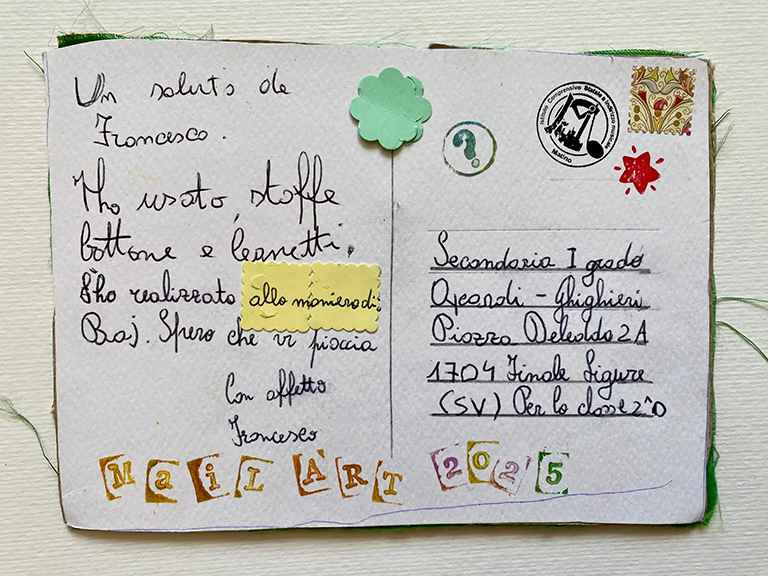 Un saluto da
Francesco.
Ho usato, stoffe
bottone e
L'ho realizzato alla maniera di:
Baj. Spero che vi piaccia
Con affetto
Francesco
?
Istituto Comprensivo Statale a indirizzo musicale
Secondaria I grado
Aycardi - Ghighieri
Piazza Deledda 2A
1704 Finale Ligure
(SV) Per la classe 2^D
MaiL ART 2025